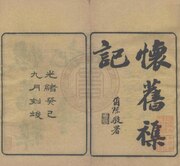 懷舊襍
記
光緒癸巳
九月刻竣